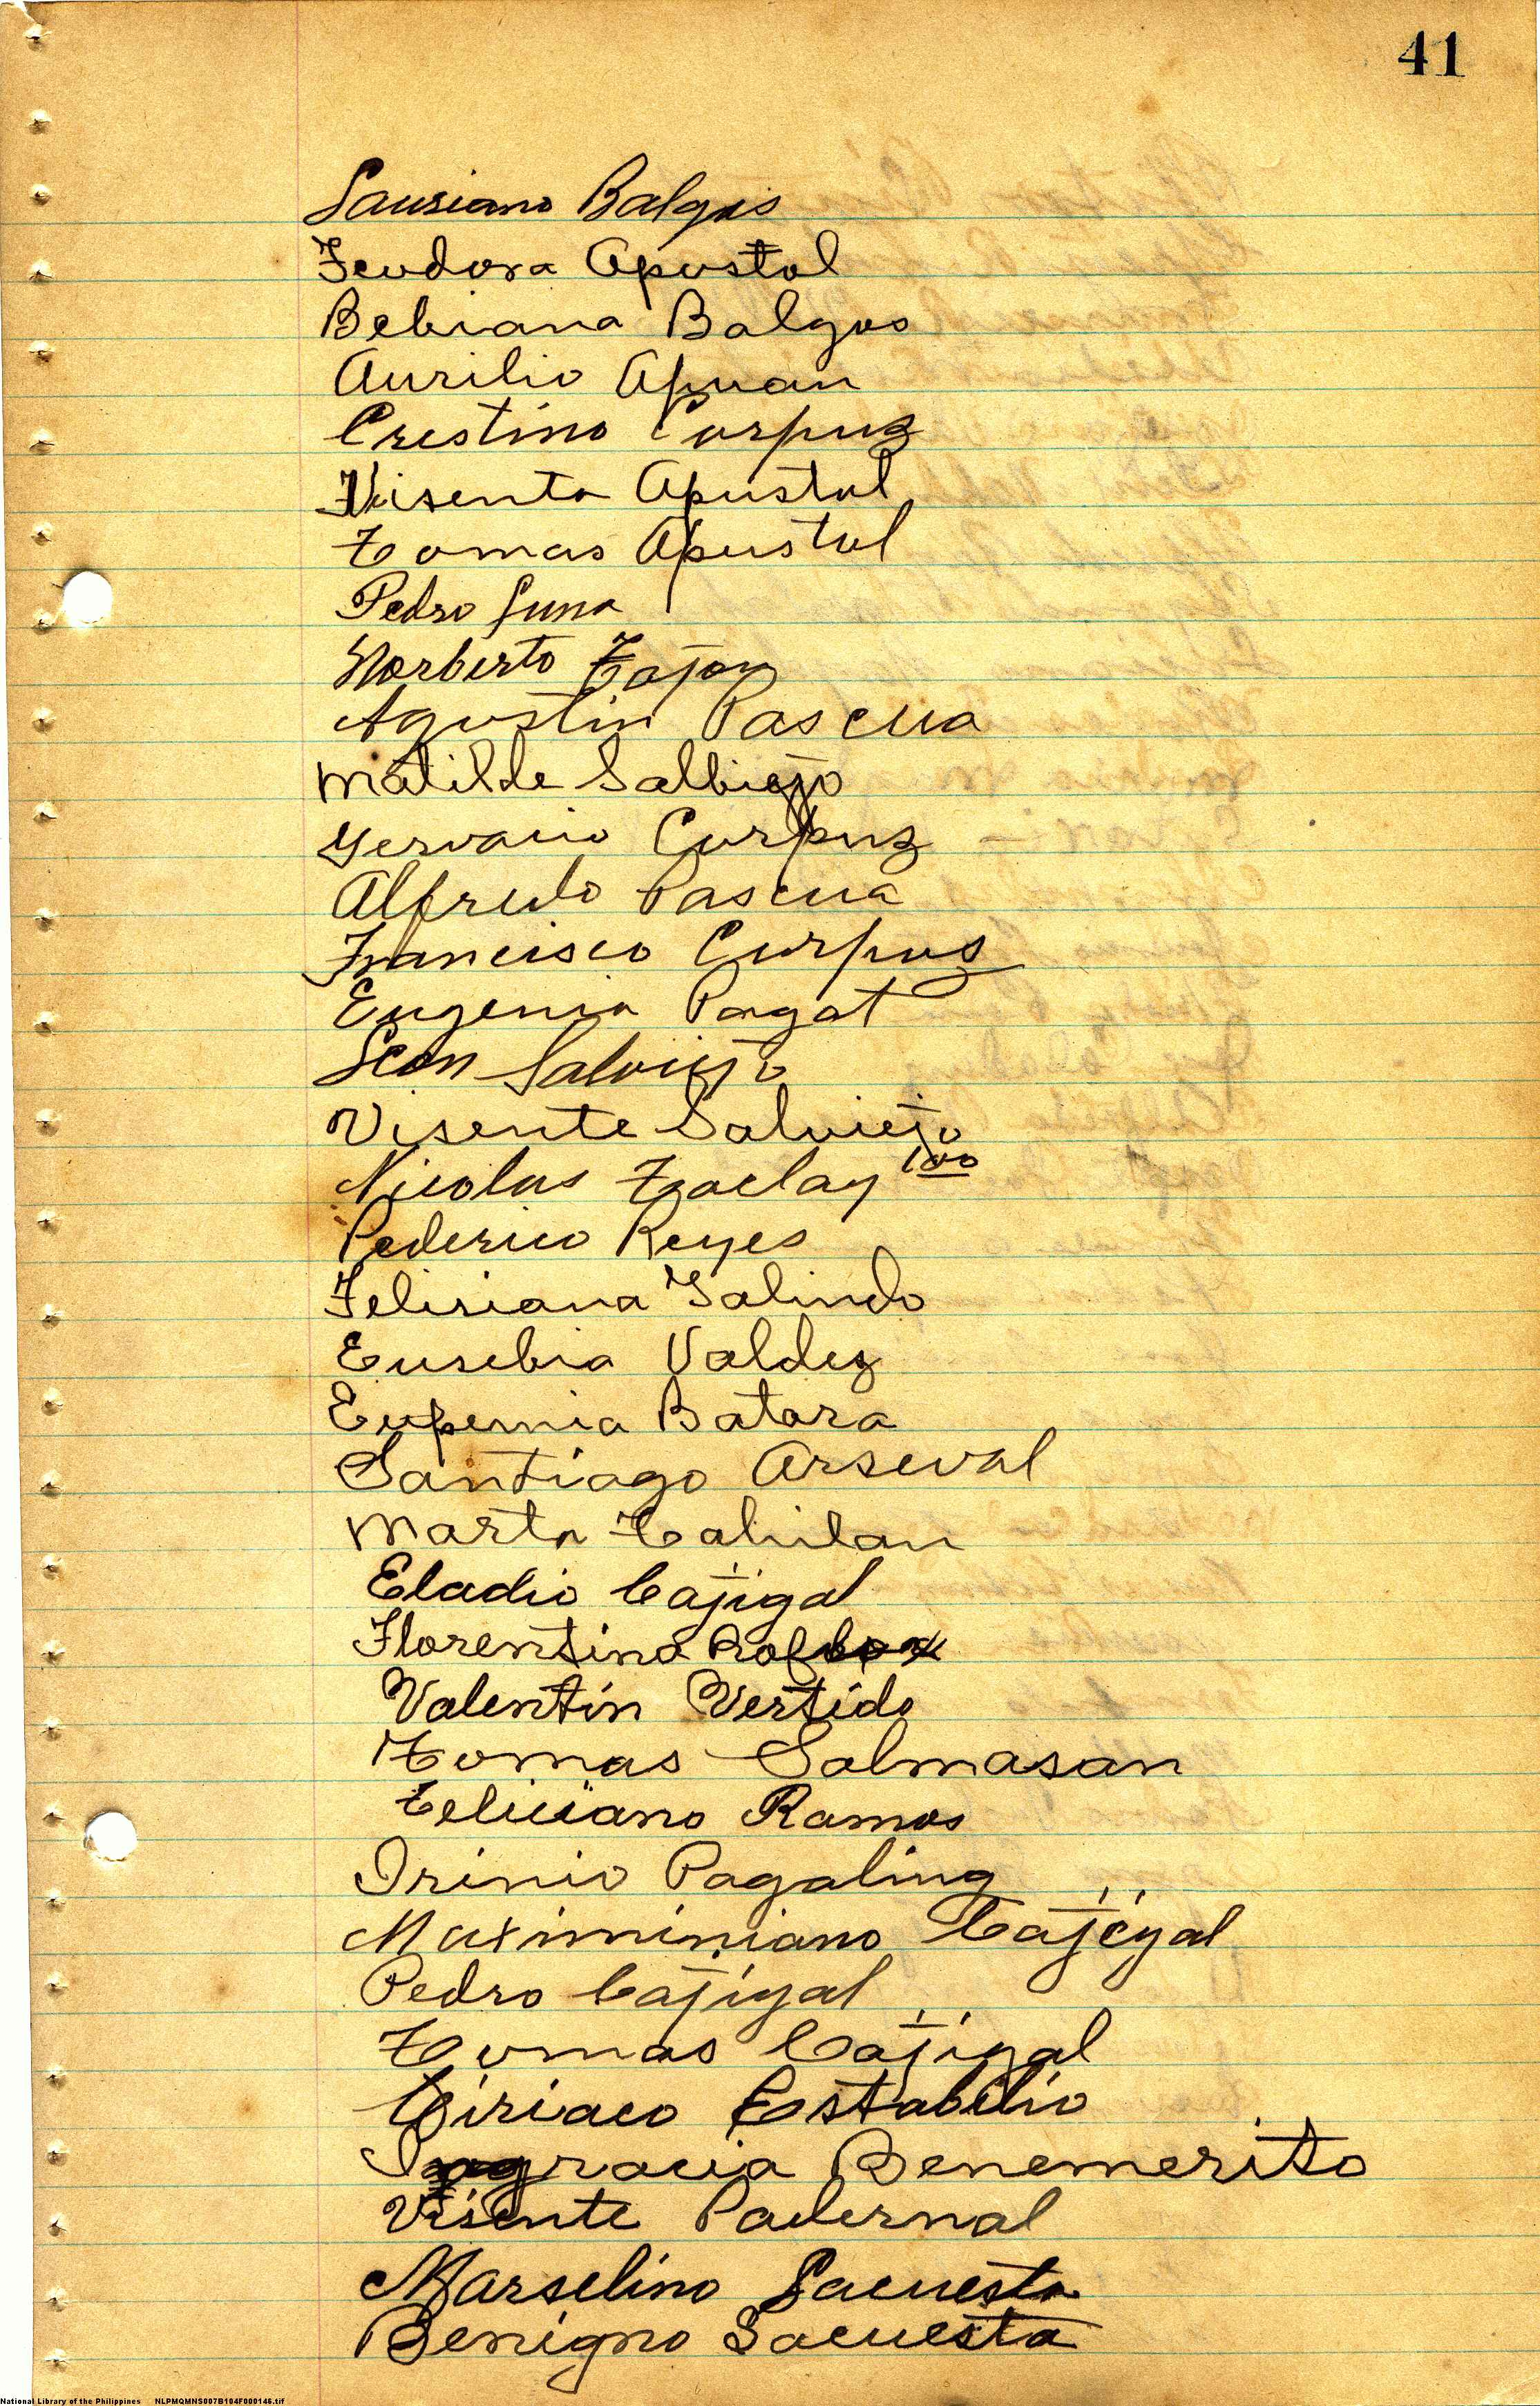 41
Lausiano Balgos
Teodora Apostol
Bebiana Balgos
Aurilio Apuan
Crestino Corpuz
Visenta Apustol
Tomas Apustol
Pedro Luna
Norberto
Agustin Pascua
Matilde Salbiejo
Gervacio Corpuz
Alfredo Pascua
Francisco Corpuz
Eugenia Pagat
Leon Salviejo
Visente Salviejo
100
Nicolas Taclay
Pederico Reyes
Felisiana Galindo
Eusebia Valdez
Eupemia Batara
Santiago Arseval
Marta
Eladio Cajigal
Florentina
Valentin Vertido
Tomas Salmasan
Feliciano Ramos
Irinio Pagaling
Maximiniano Cajigal
Pedro Cajigal
Tomas Cajigal
Ciriaco Estabilio
Ingracia Benemerito
Visente Padernal
Marselino Lacuesta
Benigno Lacuesta
National Library of the Philippines NLPMQMNS007B104F000146.tif